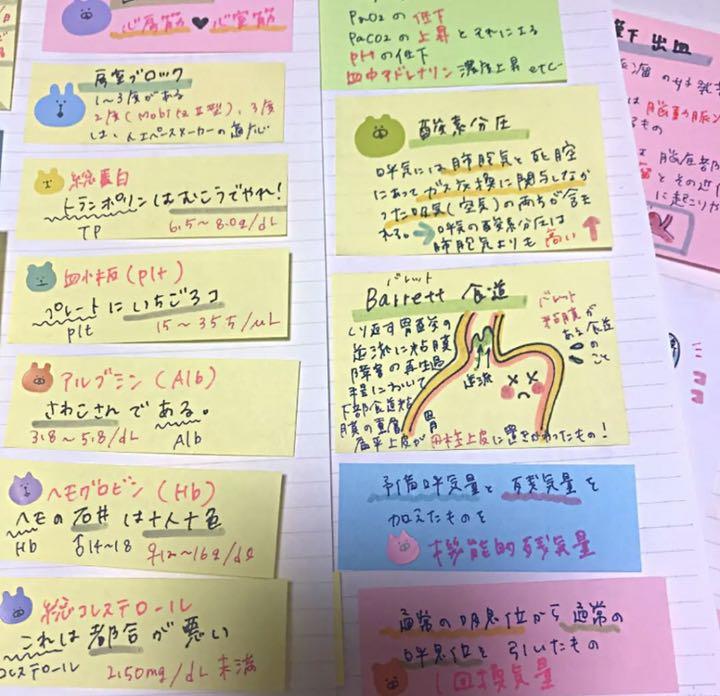 心房筋♥心室筋
房室ブロック
1～3度がある
2度(MobitzⅡ型)、3度
は、人工ペースメーカーの適応
総蛋白
トランポリンはむこうでやれ!
TP 6.5～8.0g/dL
血小板(plt)
プレートにいちごろコ
plt 15～35万/μL
アルブミン(Alb)
さわこさんである。
3.8～5.8/dL Alb
ヘモグロビン(Hb)
ヘモの石井は十人十色
Hb ♂14～18 ♀12～16g/dL
総コレステロール
これは都合が悪い
コレステロール 2.50mg/dL未満
PaO2の低下
PaCO2の上昇とそれによる
pHの低下
血中アドレナリン濃度上昇 etc
酸素分圧
呼気には肺胞気と死腔
にあってガス交換に関与しなか
った吸気(空気)の両方が含ま
れる。→呼気の酸素分圧は
肺胞気よりも高い↑
バレット
Barrett食道
くり返す胃酸の
逆流に粘膜
障害の再生過
程において
下部食道粘
膜の重層
扁平上皮が円柱上皮に置きかわったもの!
逆流
胃
バレット
粘膜が
ある食道
のこと
予備呼気量と残気量を
加えたものを
機能的残気量
通常の吸息位から通常の
呼息位を引いたもの
1回換気量
下出血
は脳動脈
もの
脳底部
とその近
に起こりや